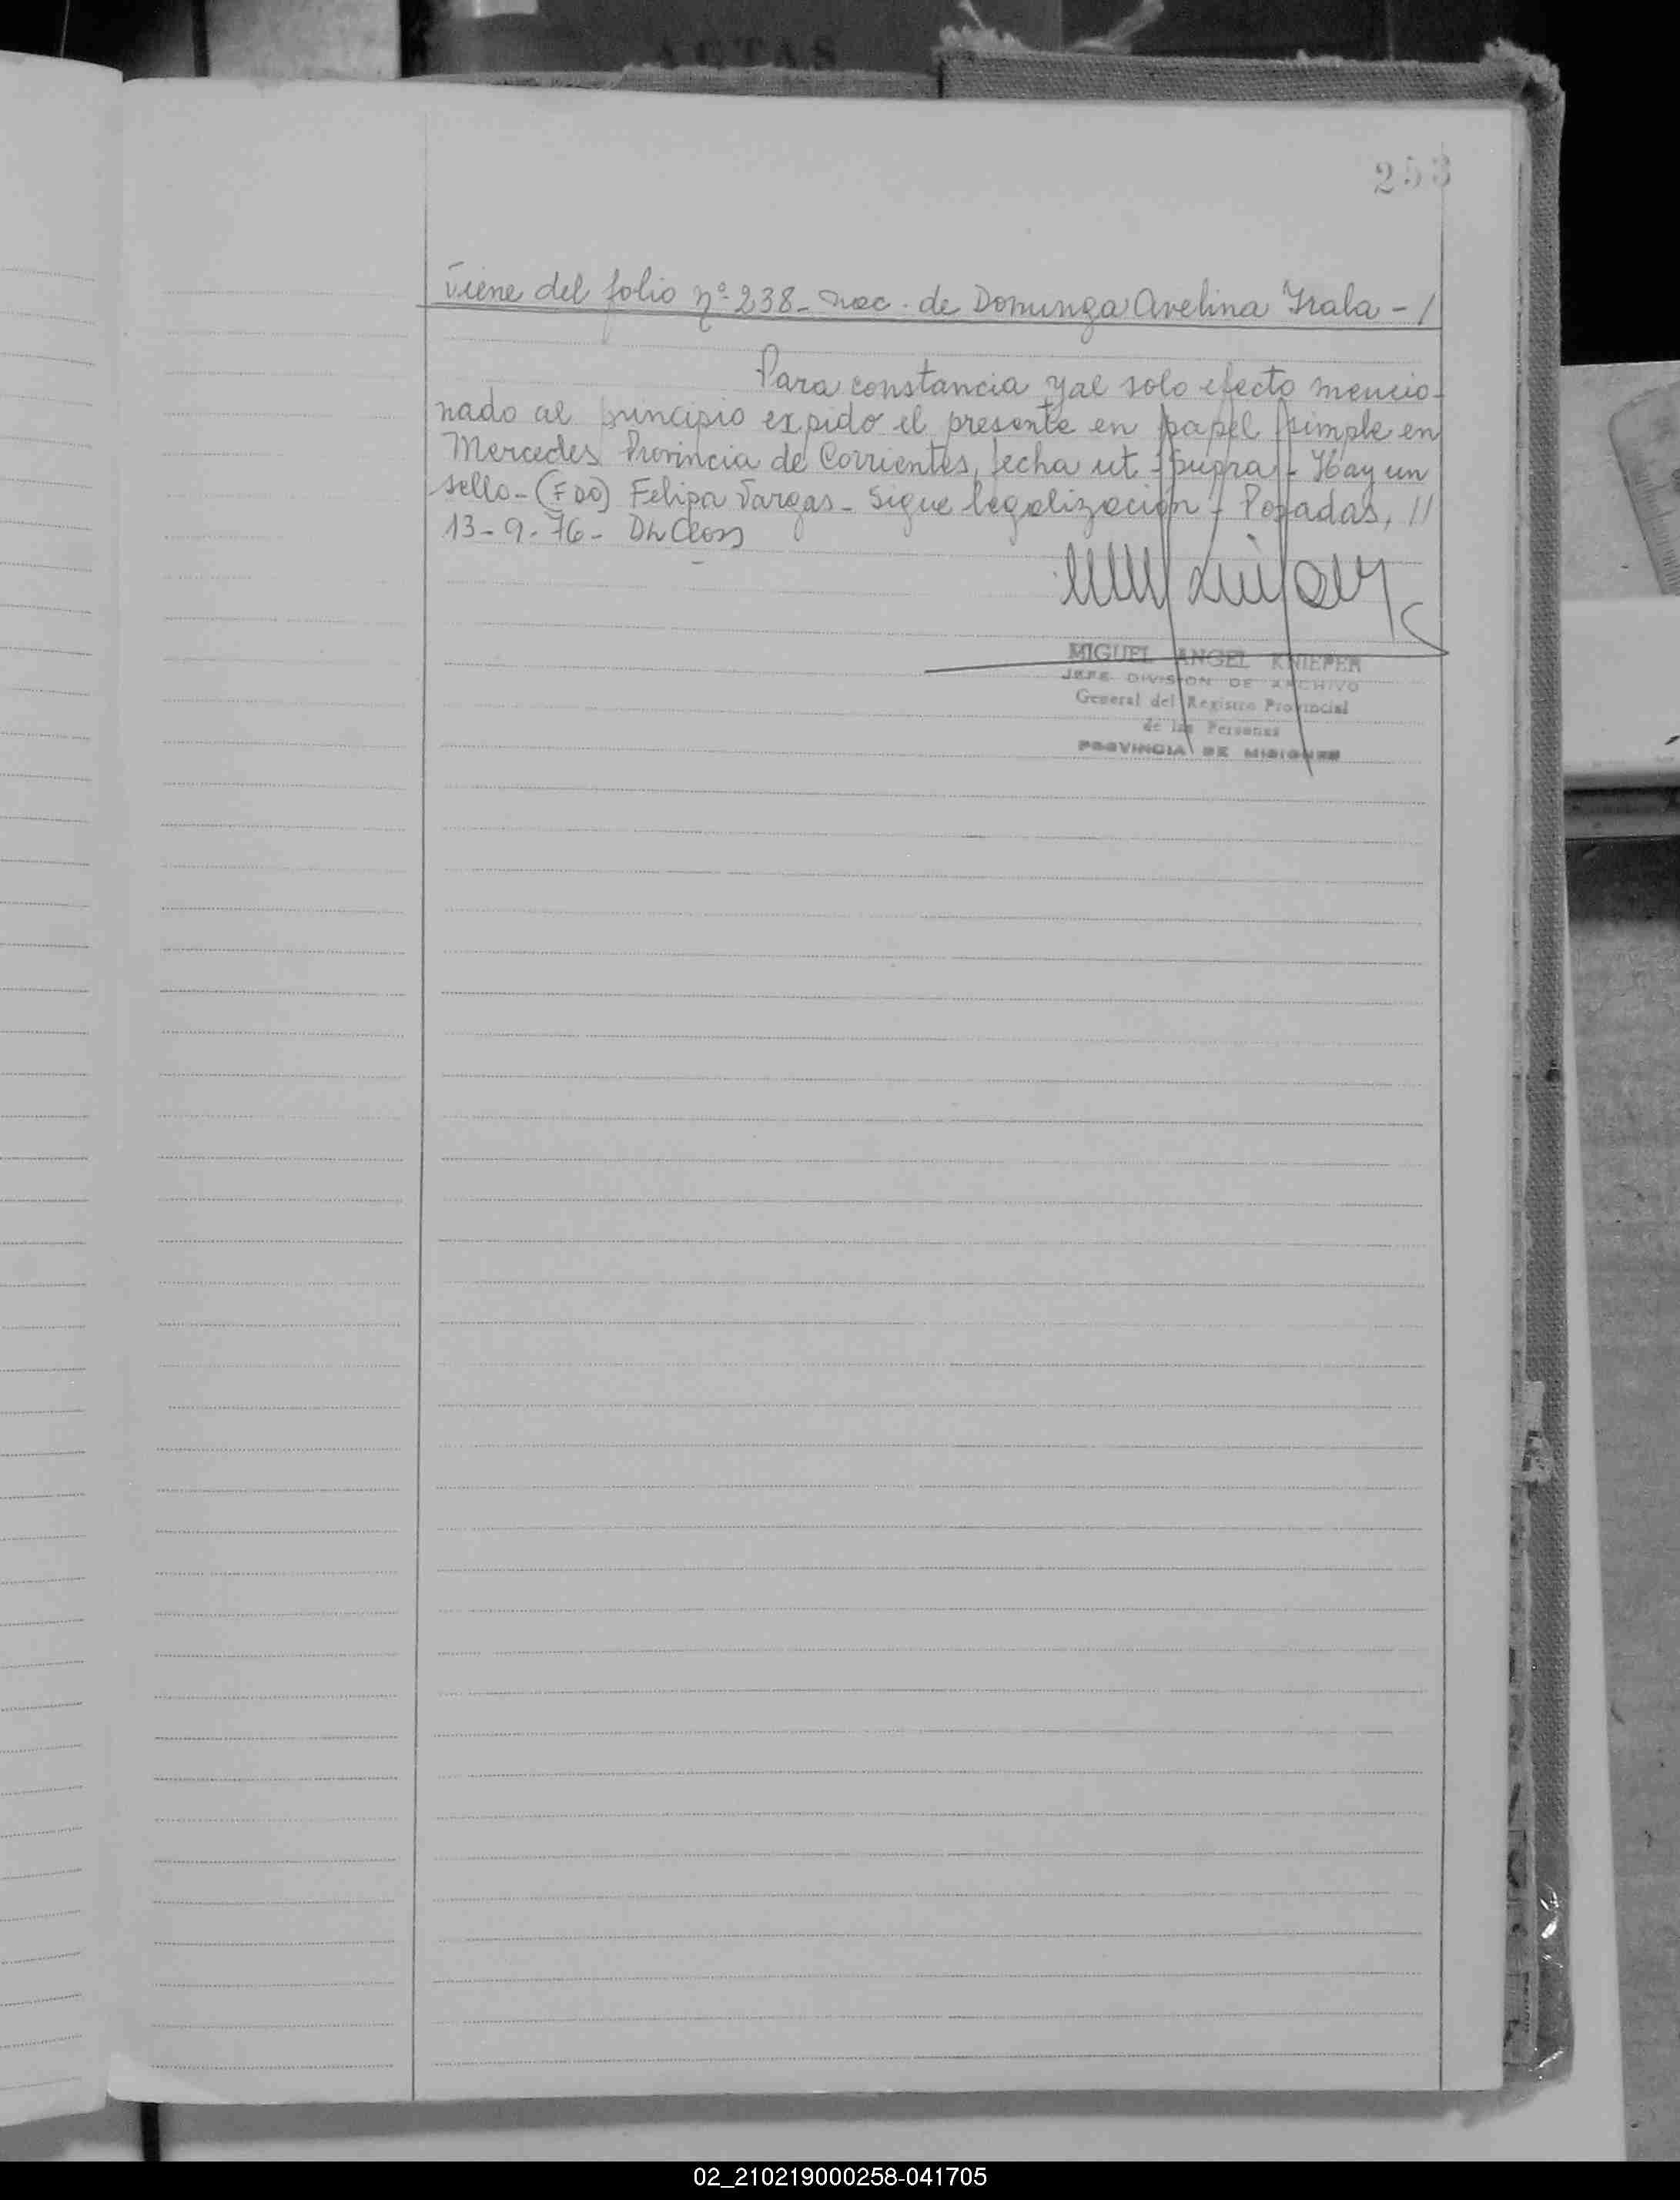 ACTAS
253
Viene del folio nº 238 - nac. de Dominga Avelina Irala - /
Para constancia y al solo efecto mencio-
nado al principio expido el presente en papel simple en
Mercedes Provincia de Corrientes, fecha ut - supra - Hay un
sello - (FDO) Felipa Vargas - Sigue legalizacion - Posadas, //
13 - 9 - 76 -
MIGUEL ANGEL KNIEPER
JEFE DIVISION DE ARCHIVO
General del Registro Provincial
de las Personas
PROVINCIA DE MISIONES
02_210219000258-041705